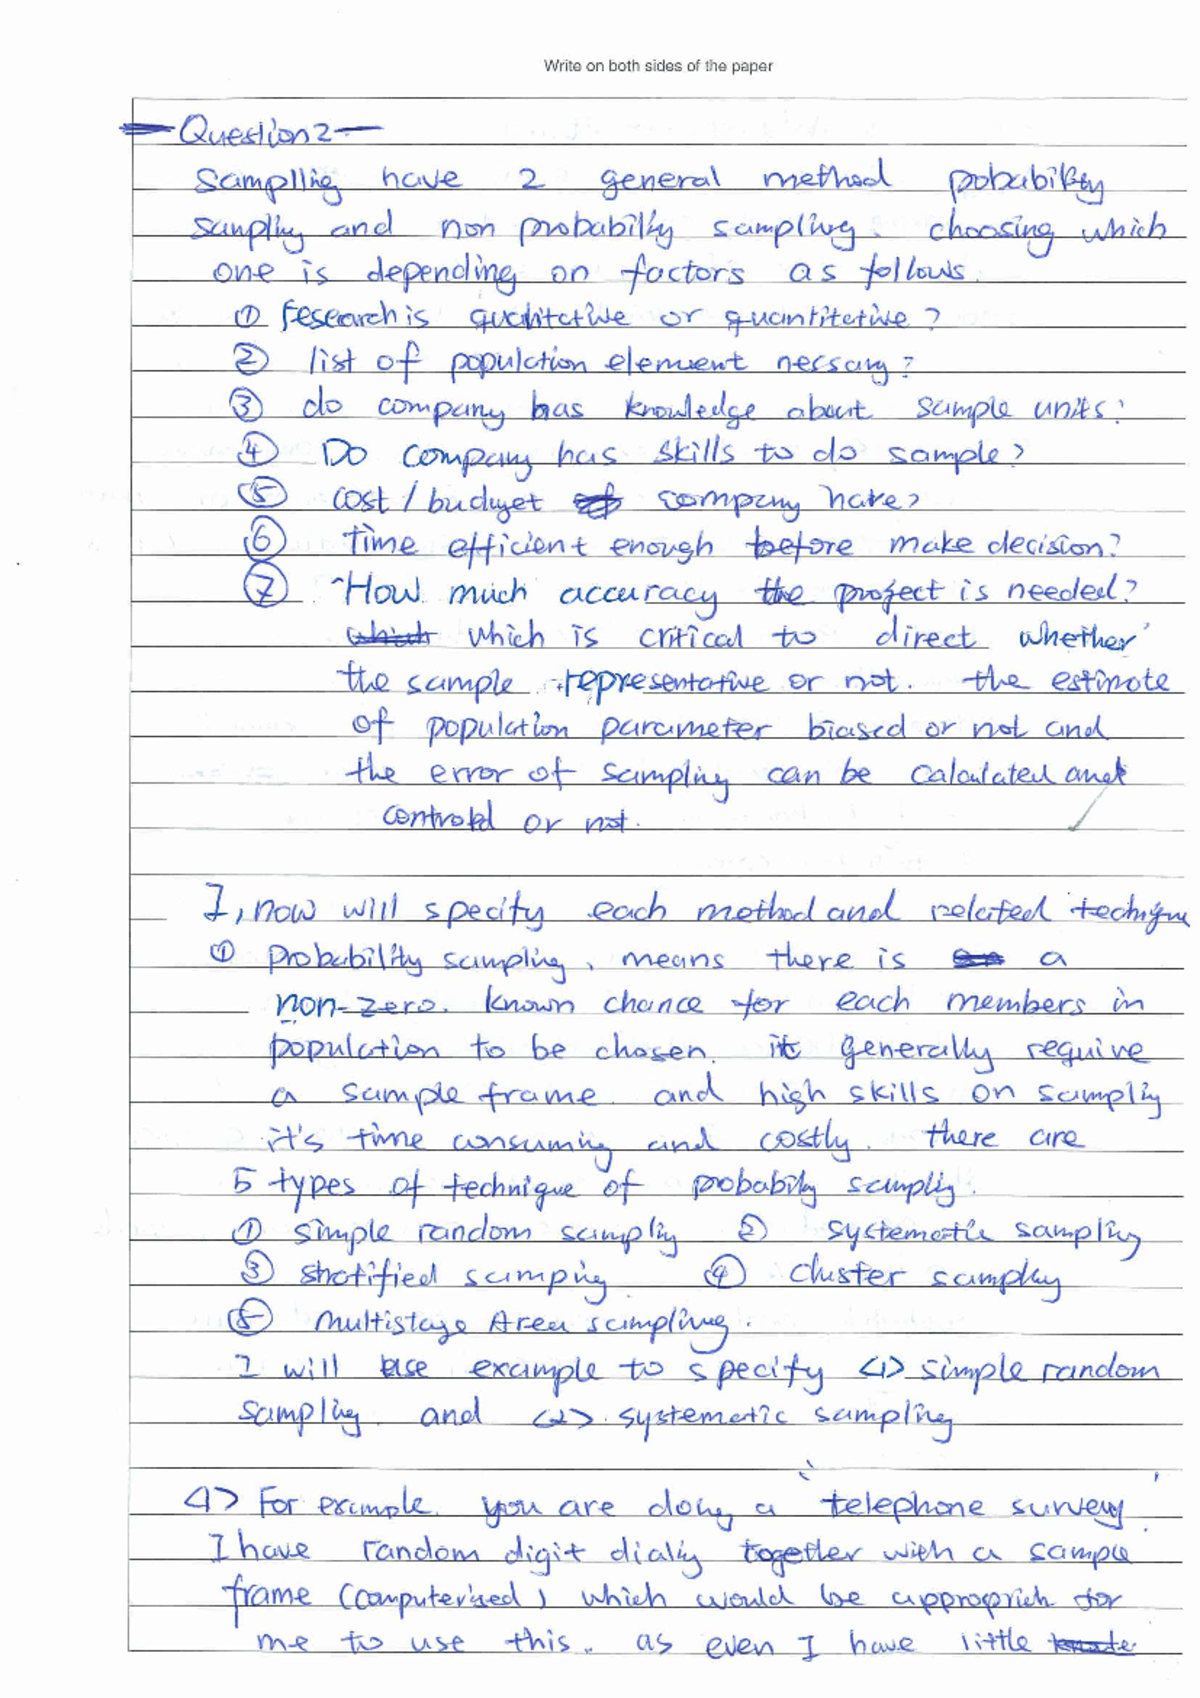 Write on both sides of the paper
Question 2
Sampllig have 2 general method pobability
sampling and non probability sampling. choosing which
one is depending on factors as follows.
① research is qualitative or quantitative?
② list of population element nessary?
③ do company has knowledge about sample units?
④ Do company has skills to do sample?
⑤ cost / budget of company have?
⑥ Time efficient enough before make decision?
⑦ How much accuracy the project is needed?
which which is critical to direct whether
the sample representative or not. the estimate
of population parameter biased or not and
the error of sampling can be calculated and
controled or not.
I, now will specify each method and related technique
① probability sampling, means there is a
non-zero. known chance for each members in
population to be chosen. it generally require
a sample frame and high skills on sampling
it's time consuming and costly. there are
5 types of technique of probability sampling.
① simple random sampling ② systematic sampling
③ stratified sampling ④ cluster sampling
⑤ Multistage Area sampling.
I will use example to specify <1> simple random
sampling and <2>. systematic sampling
<1> For example. you are doing a "telephone survey"
I have random digit dialing together with a sample
frame (computerised) which would be appropriate for
me to use this. as even I have little